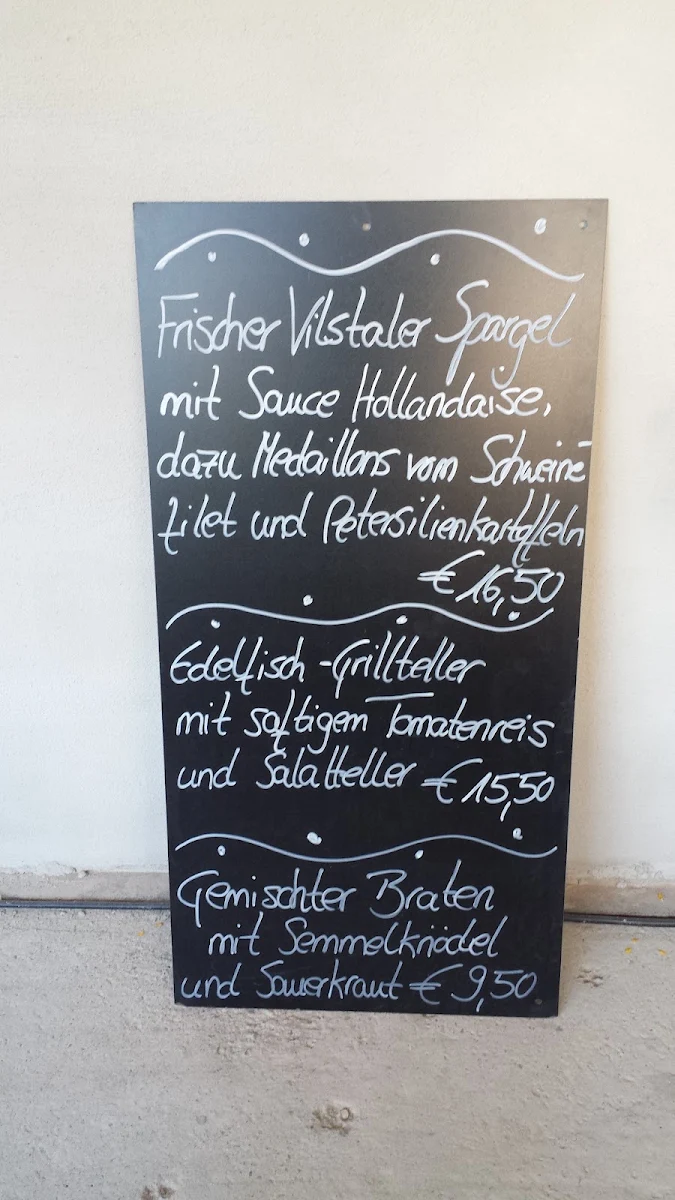 Frischer Vilstaler Spargel
mit Sauce Hollandaise,
dazu Medaillons vom Schweine-
filet und Petersilienkartoffeln
€ 16,50
Edelfisch-Grillteller
mit saftigem Tomatenreis
und Salatteller € 15,50
Gemischter Braten
mit Semmelknödel
und Sauerkraut € 9,50